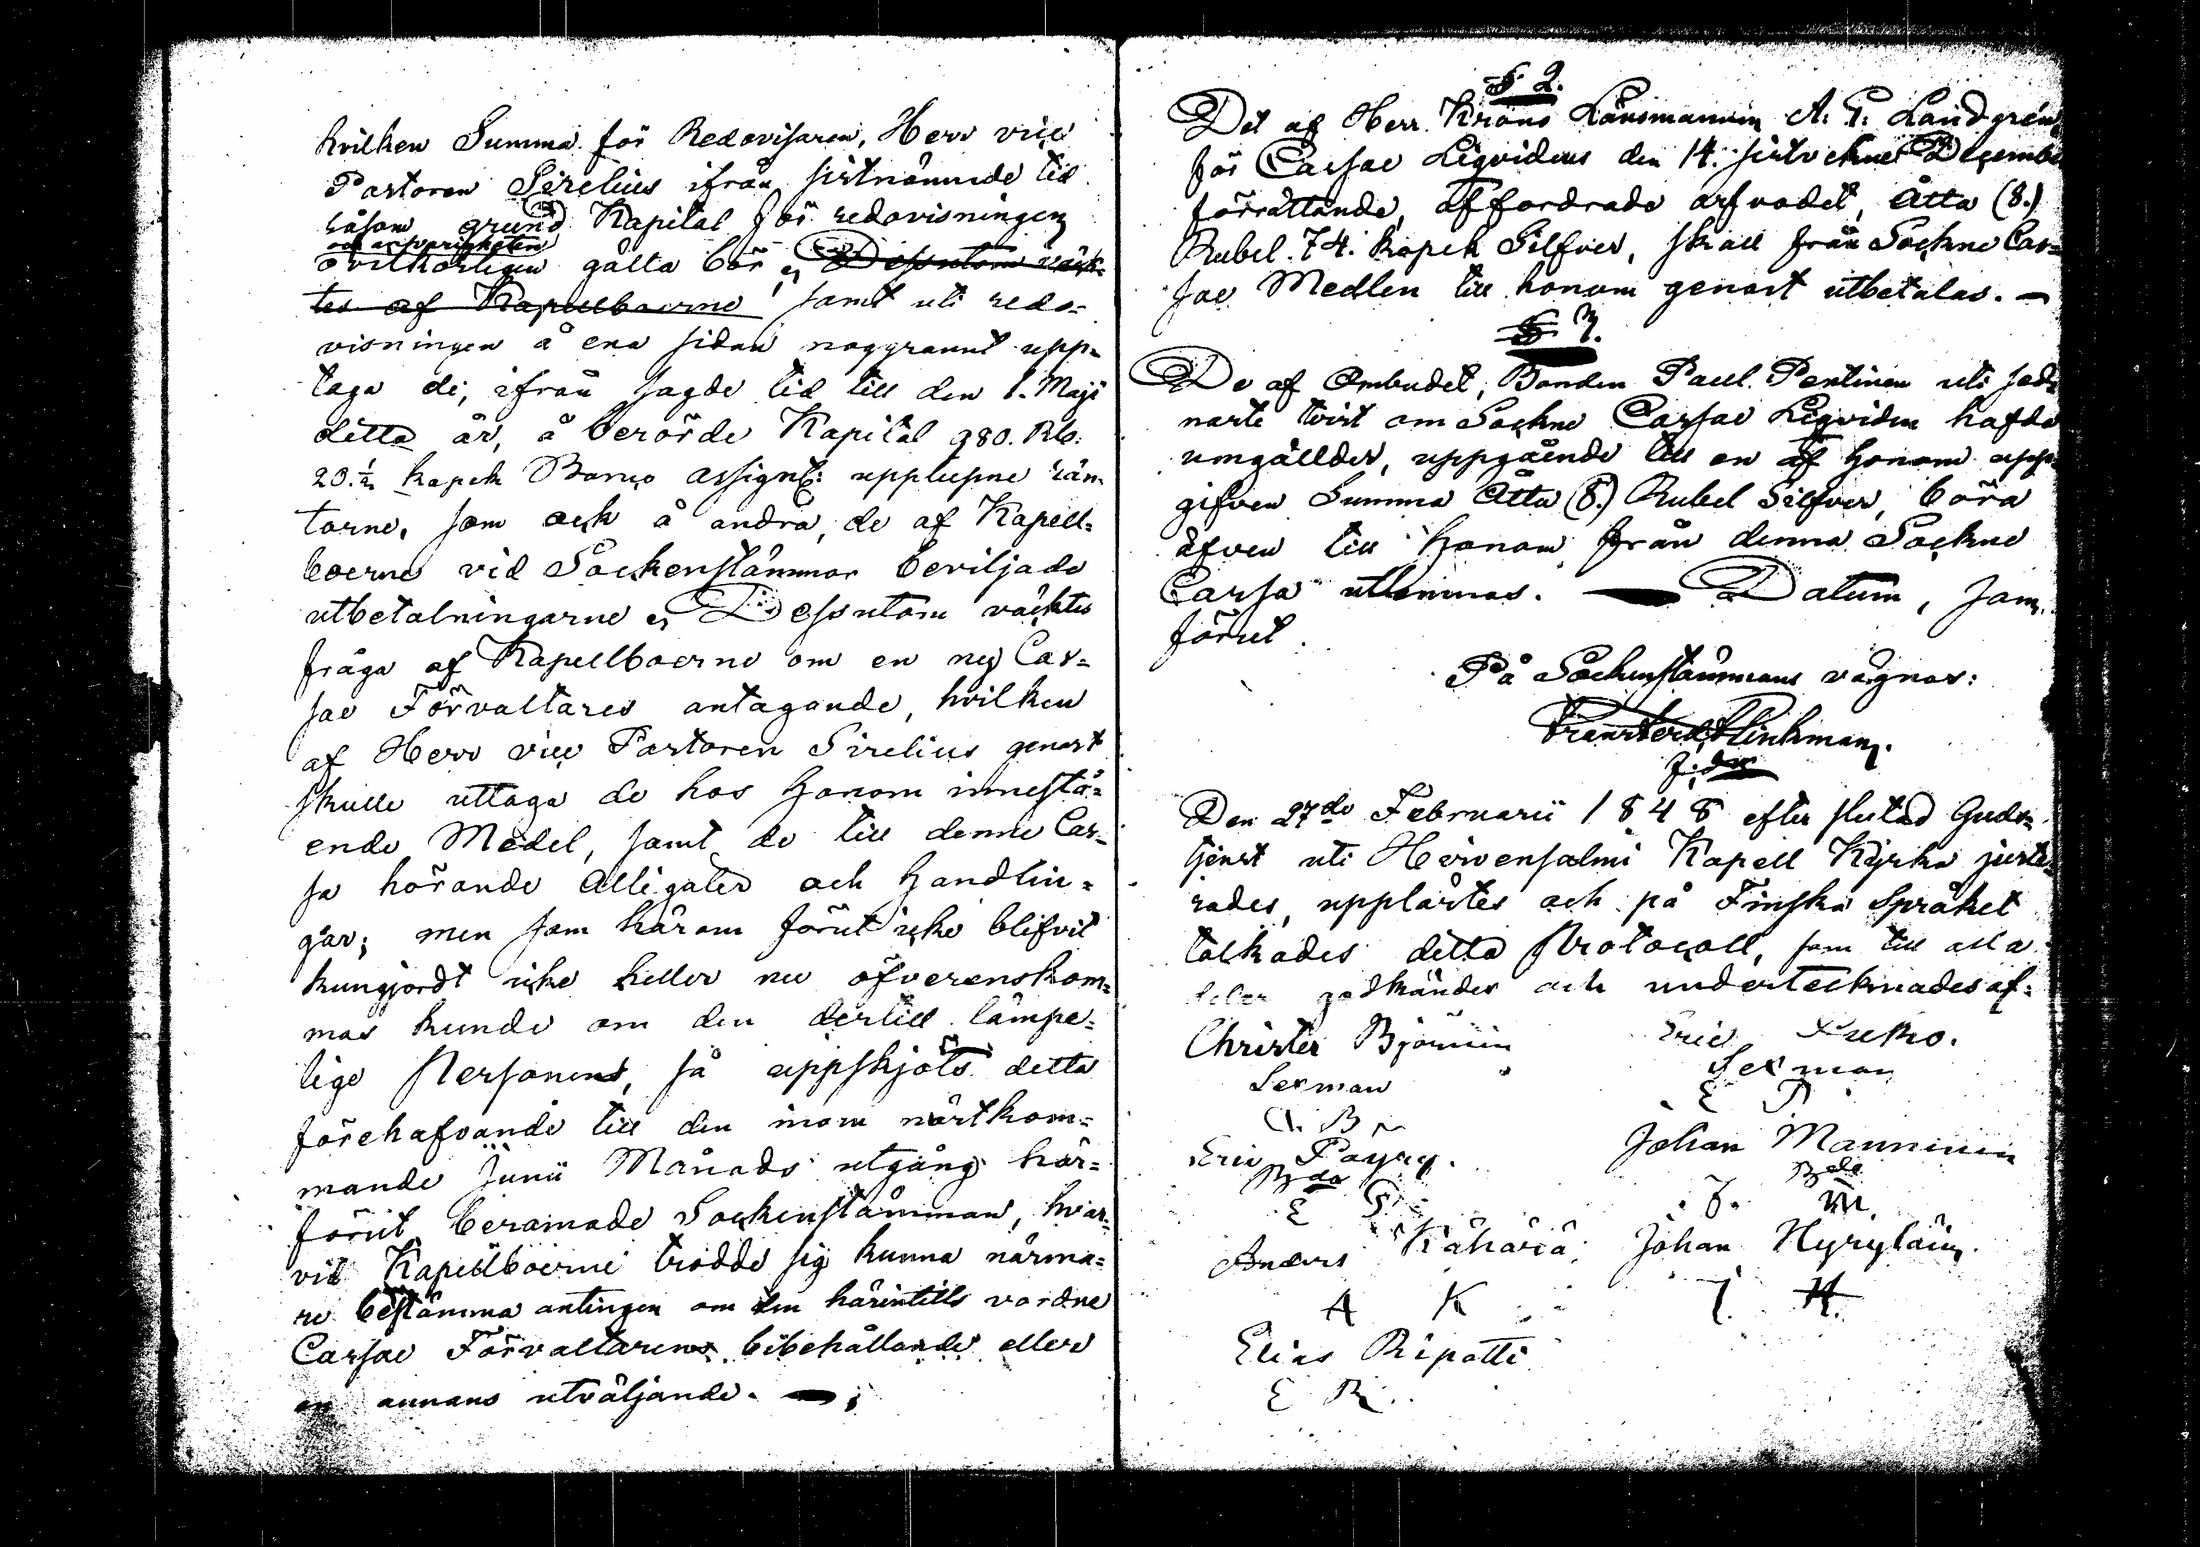 hvilken Summa för Redovisaren, Herr vice
Pastoren Sirelius ifrån sistnämnde tid
såsom grund Kapital för redovisningen
och ansvarigheten
ovilkorligen gälla bör, Dessutom väck-
tes af Kapellboerne samt uti redo-
visningen å ena sidan noggrannt upp-
taga de, ifrån sagde tid till den 1. Maji
detta år, å berörde Kapital 980. Rb.
20.½ kopek Banco assignt: upplupne rän-
torne, som ock å andra, de af Kapell-
boerne vid Sockenstämmor beviljade
utbetalningarne, Dessutom väcktes
fråga af Kapellboerne om en ny Cas-
sae Förvaltares antagande, hvilken
af Herr vice Pastoren Sirelius genast
skulle uttaga de hos Honom innestå-
ende Medel, samt de till denne Cas-
sa hörande Alligater och Handlin-
gar; men som härom förut icke blifvit
kungjordt icke heller nu öfverenskom-
mas kunde om den dertill lämpe-
lige Personen, så uppskjöts detta
förehafvande till den inom nästkom-
mande Junii Månads utgång här-
förut beramade Sockenstämman, hvar-
vid Kapellboerne trodde sig kunna närma-
re bestämma antingen om den härintills vordne
Cassae Förvaltarens bibehållande eller
en annans utväljande. —
§ 2.
Det af Herr Krono Länsmannen A. G. Landgrén,
för Cassae Liqvidens den 14. sistvekne December
förrättande, affordrade arfvodet, Åtta (8.)
Rubel 74. kopek Silfver, skall från Sockne Cas-
sae Medlen till honom genast utbetalas. —
§ 3.
De af Ombudet, Bonden Paul Pentinen uti sed-
naste tvist om Sockne Cassae Liqviden hafde
umgällder, uppgående till en af Honom upp-
gifven Summa Åtta (8.) Rubel Silfver, böra
äfven till Honom från denna Sockne
Cassa utlemnas. — Datum, som
förut.
På Sockenstämmans vägnar:
Den 27de Februarii 1848 efter slutad Guds-
tjenst uti Hirvensalmi Kapell Kyrka juste-
rades, upplästes och på Finska Språket
tolkades detta Protocoll, som till alla
delar godkändes och undertecknades af:
Christer Björnin
Sexman
C. B
Eric Pukko.
Sexman
E P
Eric Payry.
Bde
E P.
Johan Manninen
Bde
J. M.
Anders Kähärä.
A K
Johan Hyryläin.
J. H.
Elias Ripatti
E R.